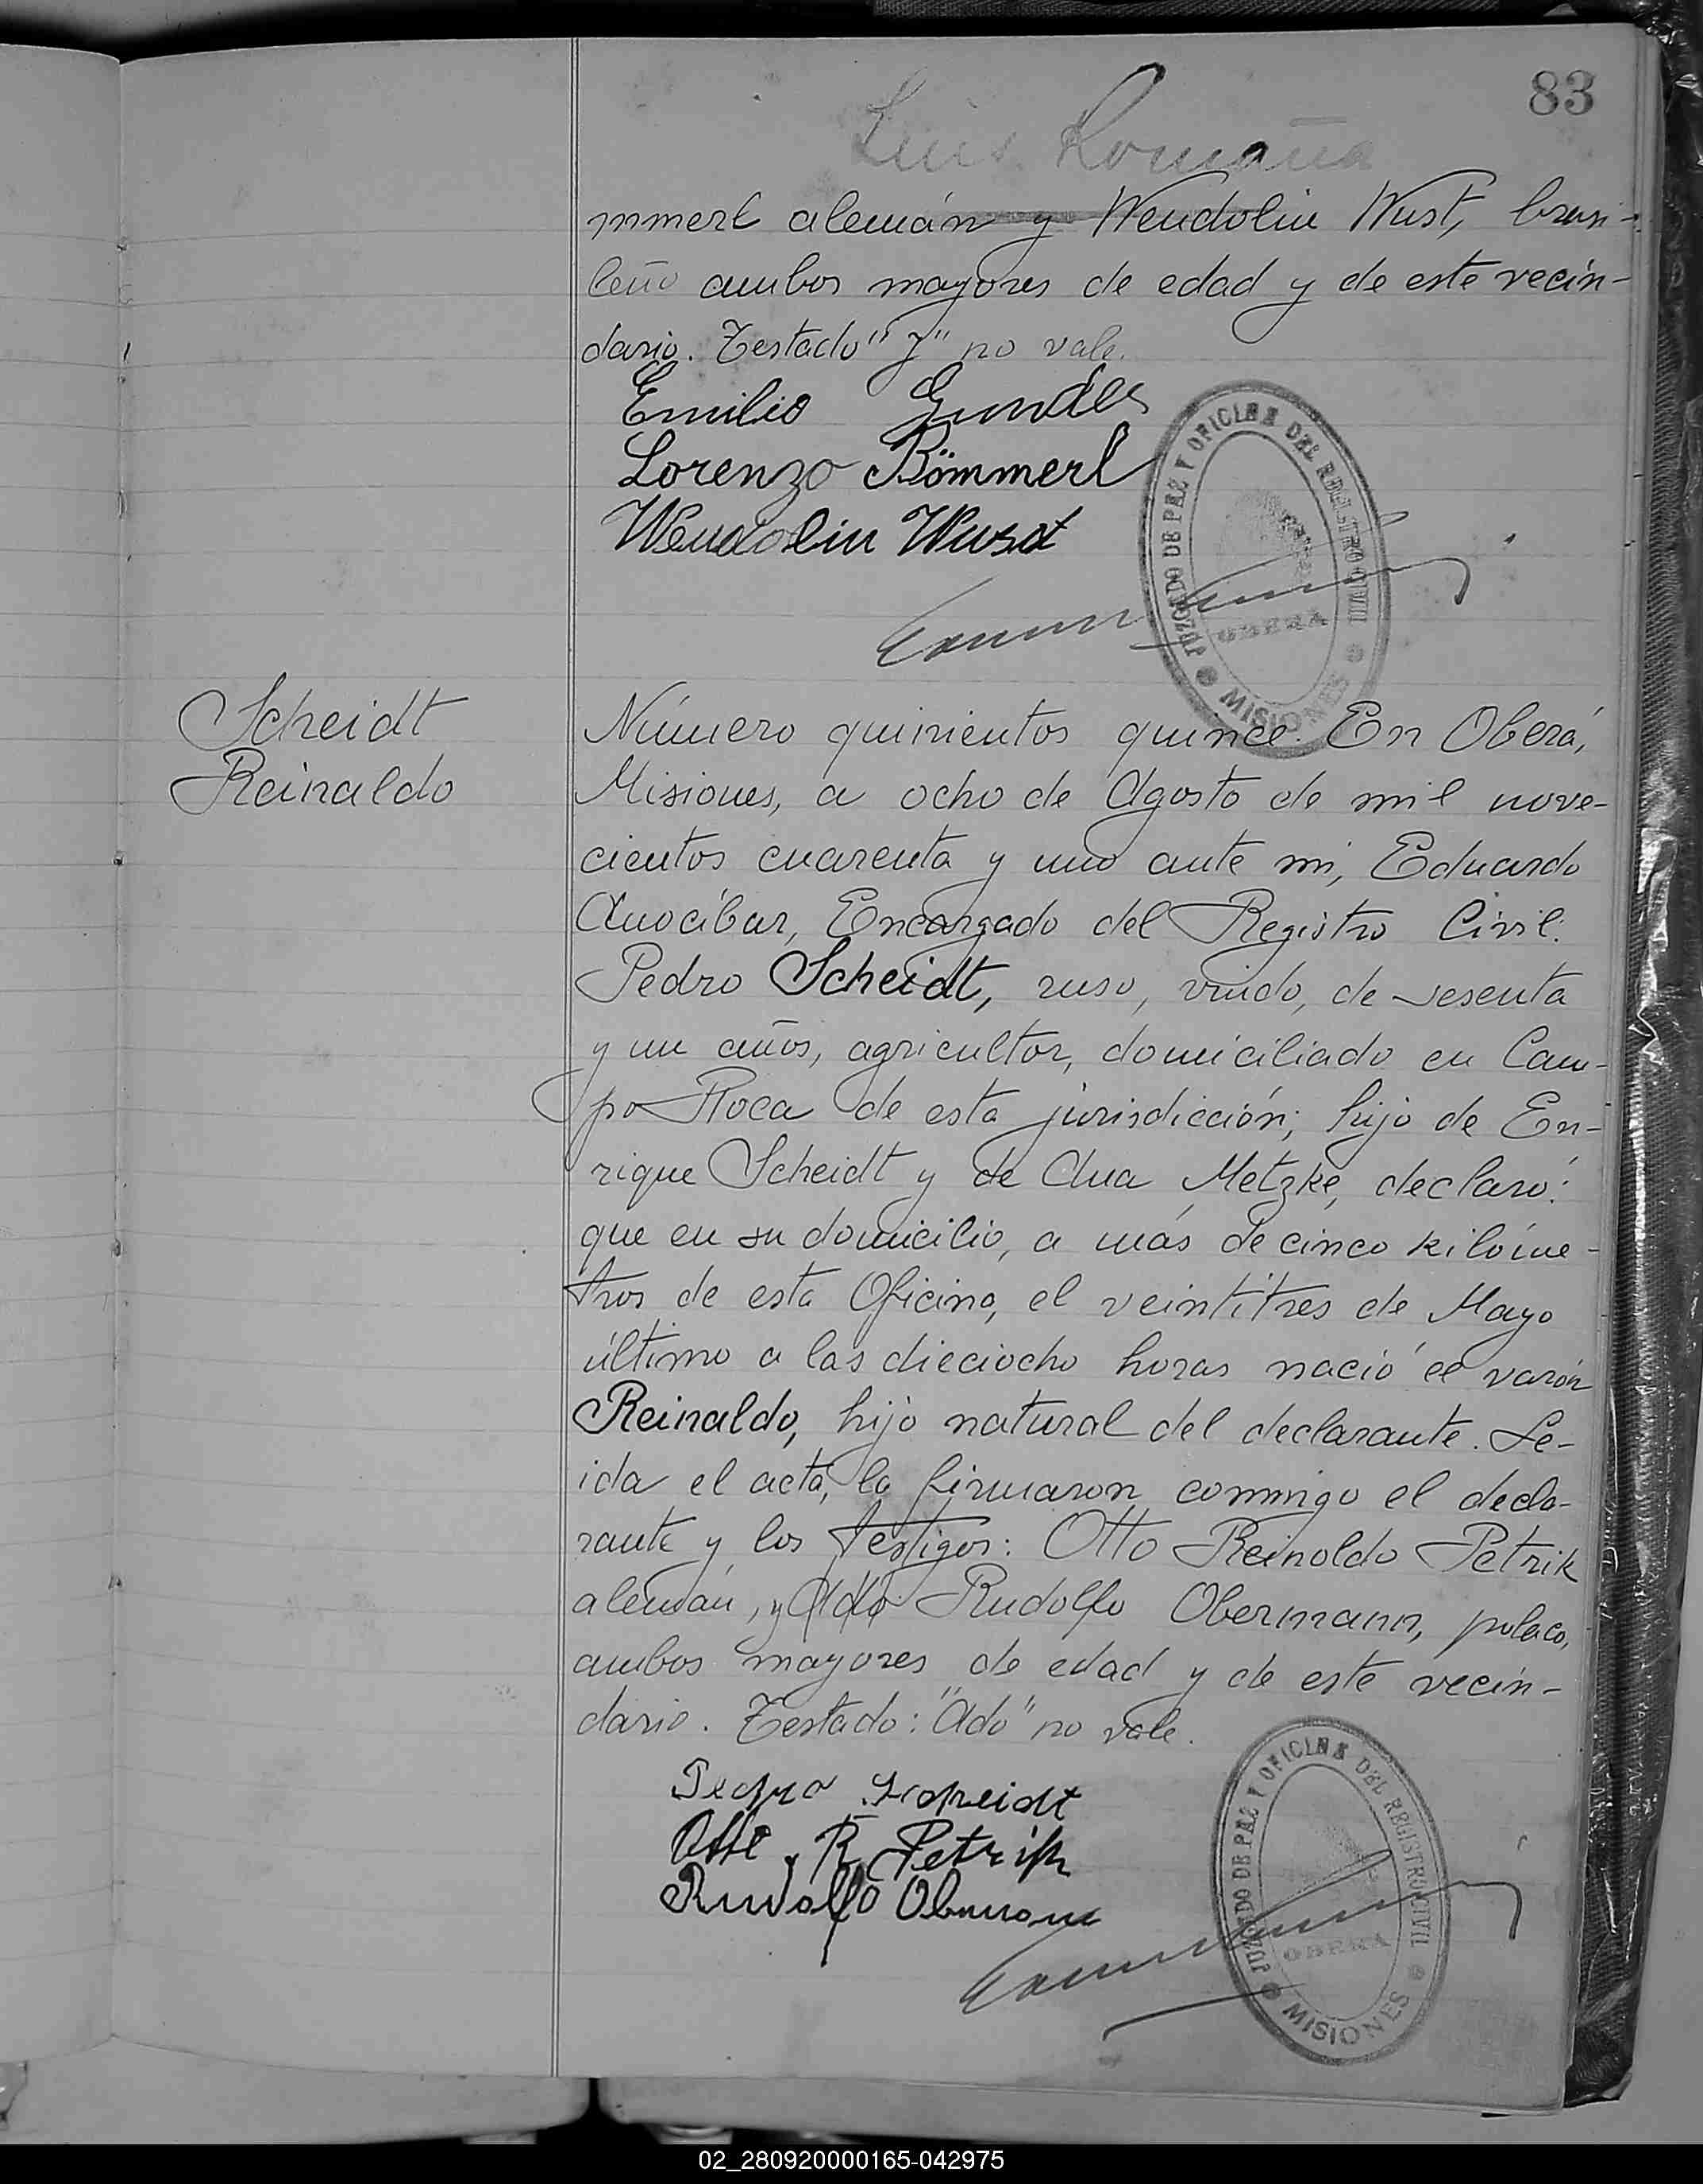 83
Luis Romaña
mmerl alemán y Wendolin Wust, brasi-
leño ambos mayores de edad y de este vecin-
dario. Testado "y" no vale.
Emilio
Lorenzo Bömmerl
Wendolin Wust
JUZGADO DE PAZ Y OFICINA DEL REGISTRO CIVIL
OBERA
MISIONES
Scheidt
Reinaldo
Número quinientos quince. En Oberá,
Misiones, a ocho de Agosto de mil nove-
cientos cuarenta y uno ante mi, Eduardo
Anocíbar, Encargado del Registro Civil:
Pedro Scheidt, ruso, viudo, de sesenta
y un años, agricultor, domiciliado en Cam-
po Roca de esta jurisdicción; hijo de En-
rique Scheidt y de Ana Metzke, declaró:
que en su domicilio, a más de cinco kilóme-
tros de esta Oficina, el veintitres de Mayo
último a las dieciocho horas nació el varón
Reinaldo, hijo natural del declarante. Le-
ida el acta, la firmaron conmigo el decla-
rante y los testigos: Otto Reinoldo Petrik
alemán, y Adó Rudolfo Obermann, polaco,
ambos mayores de edad y de este vecin-
dario. Testado: "Adó" no vale.
Pedro Scheidt
Otto R. Petrik
Rudolfo Obermann
JUZGADO DE PAZ Y OFICINA DEL REGISTRO CIVIL
OBERA
MISIONES
02_280920000165-042975